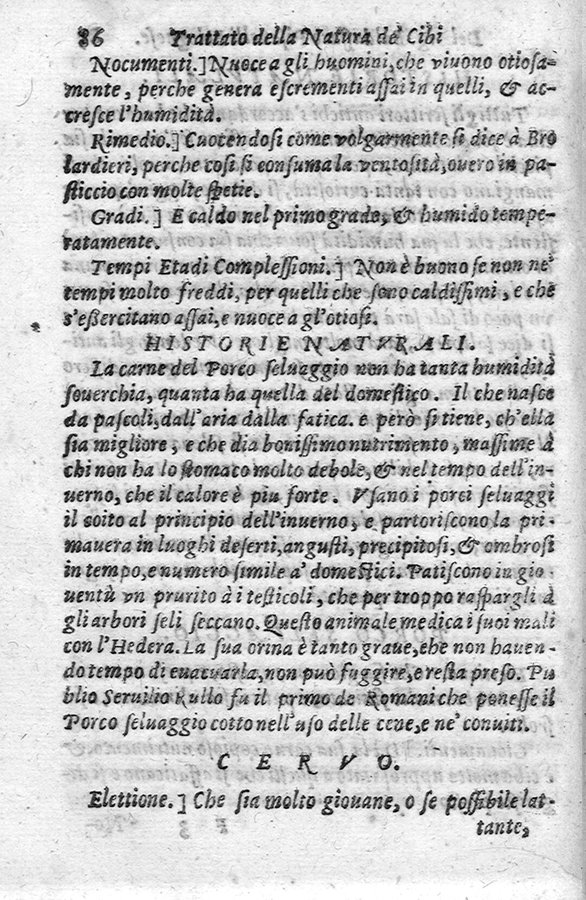 86 Trattato della Natura de Cibi
Nocumenti.] Nuoce a gli huomini, che viuono otiosa-
mente, perche genera escrementi assai in quelli, & ac-
cresce l'humidità.
Rimedio.] Cuocendosi come volgarmente si dice à Bro
lardieri, perche cosi si consuma la ventosità, ouero in pa-
sticcio con molte spetie.
Gradi.] E caldo nel primo grado, & humido tempe-
ratamente.
Tempi Etadi Complessioni.] Non è buono se non ne'
tempi molto freddi, per quelli che sono caldissimi, e che
s'eßercitano assai, e nuoce a gl'otiosi.
HISTORIE NATVRALI.
La carne del Porco seluaggio non ha tanta humidità
souerchia, quanta ha quella del domestico. Il che nasce
da pascoli, dall'aria dalla fatica. e però si tiene, ch'ella
sia migliore, e che dia bonissimo nutrimento, massime à
chi non ha lo stomaco molto debole, & nel tempo dell'in-
uerno, che il calore è piu forte. Vsano i porci seluaggi
il coito al principio dell'inuerno, e partoriscono la pri-
mauera in luoghi deserti, angusti, precipitosi, & ombrosi
in tempo, e numero simile a' domestici. Patiscono in gio
uentù vn prurito à i testicoli, che per troppo raspargli à
gli arbori seli seccano. Questo animale medica i suoi mali
con l'Hedera. La sua orina è tanto graue, che non hauen-
do tempo di euacuarla, non può fuggire, e resta preso. Pu
blio Seruilio Rullo fu il primo de Romani che ponesse il
Porco seluaggio cotto nell'uso delle cene, e ne' conuiti.
CERVO.
Elettione.] Che sia molto giouane, o se possibile lat-
tante,